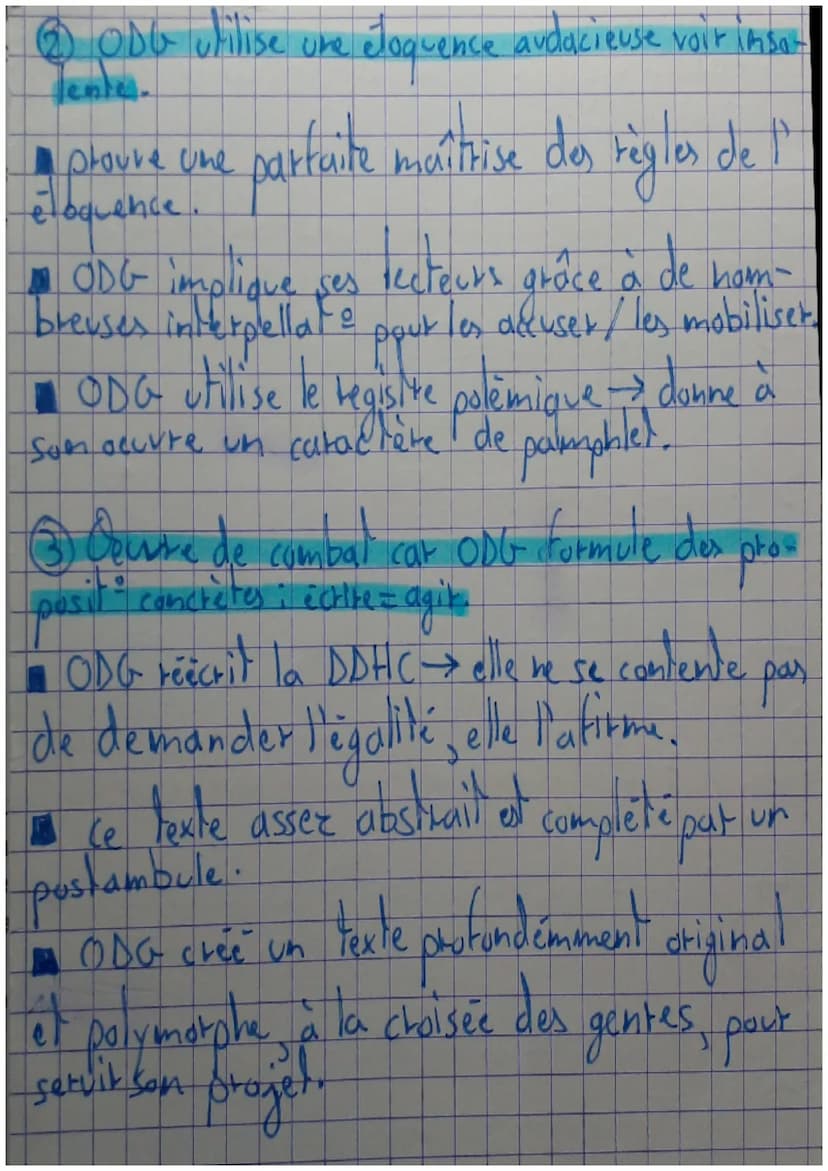 ② ODG utilise une éloquence audacieuse voir inso-
lente.
▪ prouve une parfaite maîtrise des règles de l'
éloquence.
▪ ODG implique ses lecteurs grâce à de nom-
breuses interpellatº pour les accuser / les mobiliser.
▪ ODG utilise le registre polémique → donne à
son oeuvre un caractère de pamphlet.
③ Oeuvre de combat car ODG formule des pro-
positº concrètes : écrire = agir.
▪ ODG réécrit la DDHC → elle ne se contente pas
de demander l'égalité, elle l'afirme.
▪ Ce texte assez abstrait est complété par un
postambule.
▪ ODG créé un texte profondémment original
et polymorphe, à la croisée des genres, pour
servir son projet.